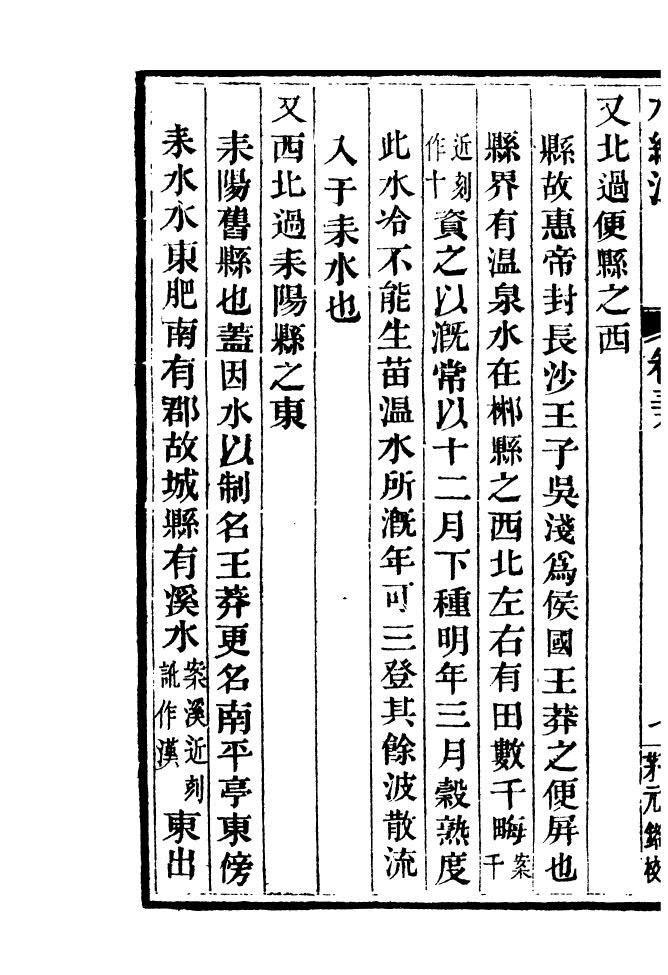 水經注 卷三 茅元銘校
又北過便縣之西
縣故惠帝封長沙王子吳淺爲侯國王莽之便屏也
縣界有温泉水在郴縣之西北左右有田數千畮案千
近刻作十資之以溉常以十二月下種明年三月穀熟度
此水冷不能生苗温水所溉年可三登其餘波散流
入于耒水也
又西北過耒陽縣之東
耒陽舊縣也蓋因水以制名王莽更名南平亭東傍
耒水水東肥南有郡故城縣有溪水案溪近刻訛作漢東出